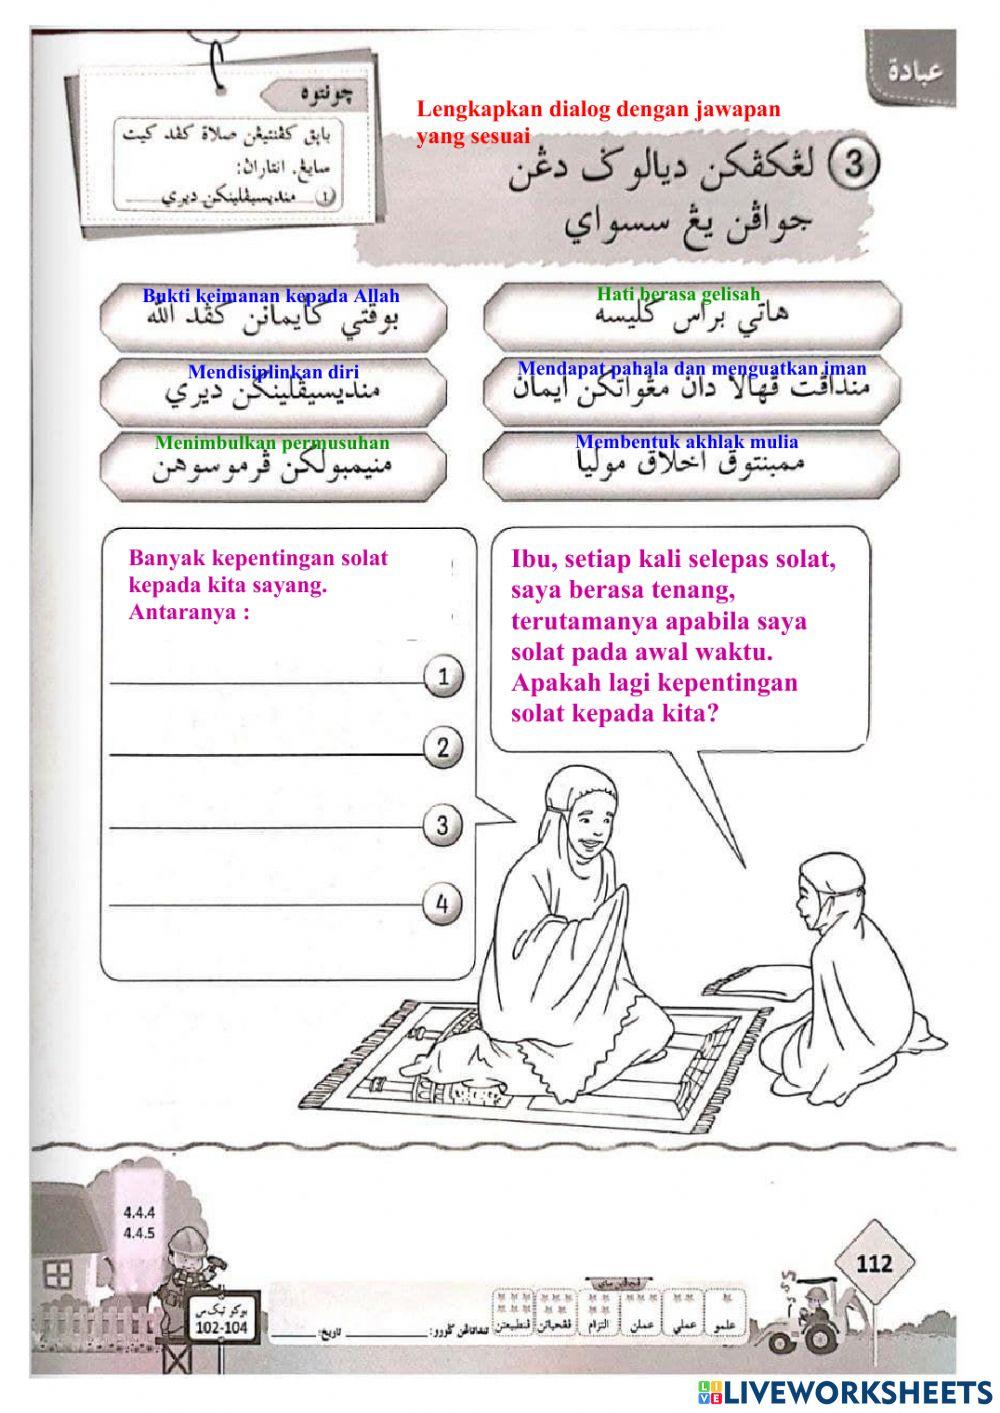 عبادة
چونتوه
باڽق كڤنتيڠن صلاة كڤد كيت
سايڠ. انتاراڽ:
١ منديسيڤلينكن ديري
Lengkapkan dialog dengan jawapan
yang sesuai
3 لڠكڤكن ديالوݢ دڠن
جواڤن يڠ سسواي
Bukti keimanan kepada Allah
بوقتي كأيمانن كڤد الله
Hati berasa gelisah
هاتي براس ݢليسه
Mendisiplinkan diri
منديسيڤلينكن ديري
Mendapat pahala dan menguatkan iman
منداڤت ڤهالا دان مڠواتكن ايمان
Menimbulkan permusuhan
منيمبولكن ڤرموسوهن
Membentuk akhlak mulia
ممبنتوق اخلاق موليا
Banyak kepentingan solat
kepada kita sayang.
Antaranya :
1
2
3
4
Ibu, setiap kali selepas solat,
saya berasa tenang,
terutamanya apabila saya
solat pada awal waktu.
Apakah lagi kepentingan
solat kepada kita?
4.4.4
4.4.5
بوكو تيک س
102-104
تاريخ:
تنداتاڠن ݢورو:
علمو
عملي
عملن
التزام
112
LIVEWORKSHEETS